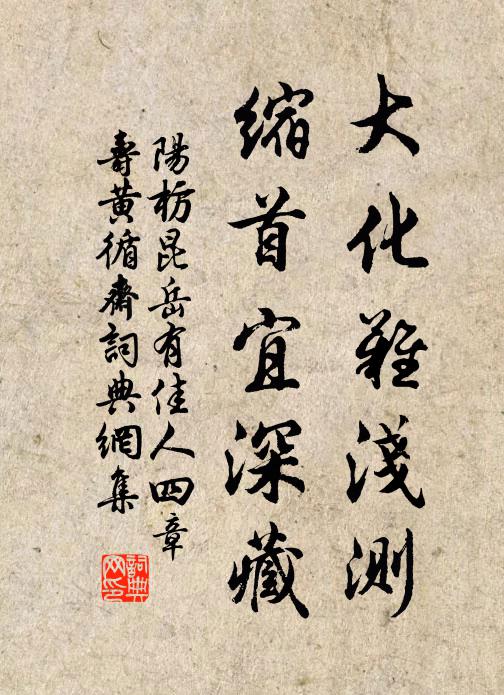 大化難淺測
縮首宜深藏
陽枋昆岳有佳人四章
壽黃循齋詞典網集
詞典
网印